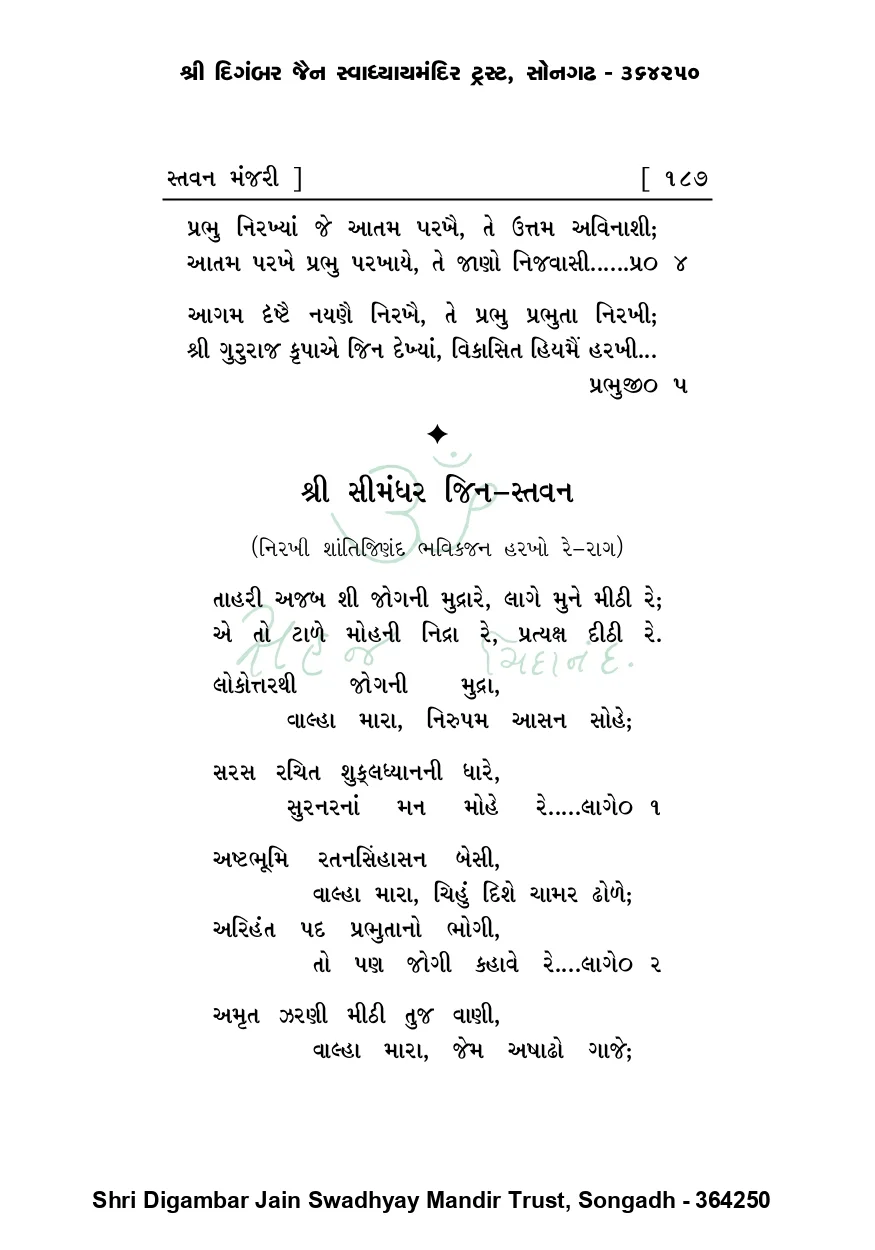 શ્રી દિગંબર જૈન સ્વાધ્યાયમંદિર ટ્રસ્ટ, સોનગઢ - ૩૬૪૨૫૦
સ્તવન મંજરી ] [ ૧૮૭
પ્રભુ નિરખ્યાં જે આતમ પરખૈ, તે ઉત્તમ અવિનાશી;
આતમ પરખે પ્રભુ પરખાયે, તે જાણો નિજવાસી......પ્ર૦ ૪
આગમ દૃષ્ટૈ નયણૈ નિરખૈ, તે પ્રભુ પ્રભુતા નિરખી;
શ્રી ગુરુરાજ કૃપાએ જિન દેખ્યાં, વિકાસિત હિયમૈં હરખી...
પ્રભુજી૦ ૫
શ્રી સીમંધર જિન–સ્તવન
(નિરખી શાંતિજિણંદ ભવિકજન હરખો રે–રાગ)
તાહરી અજબ શી જોગની મુદ્રારે, લાગે મુને મીઠી રે;
એ તો ટાળે મોહની નિદ્રા રે, પ્રત્યક્ષ દીઠી રે.
સહજ ચિદાનંદ.
લોકોત્તરથી જોગની મુદ્રા,
વાલ્હા મારા, નિરુપમ આસન સોહે;
સરસ રચિત શુક્લધ્યાનની ધારે,
સુરનરનાં મન મોહે રે.....લાગે૦ ૧
અષ્ટભૂમિ રતનસિંહાસન બેસી,
વાલ્હા મારા, ચિહું દિશે ચામર ઢોળે;
અરિહંત પદ પ્રભુતાનો ભોગી,
તો પણ જોગી કહાવે રે....લાગે૦ ૨
અમૃત ઝરણી મીઠી તુજ વાણી,
વાલ્હા મારા, જેમ અષાઢો ગાજે;
Shri Digambar Jain Swadhyay Mandir Trust, Songadh - 364250